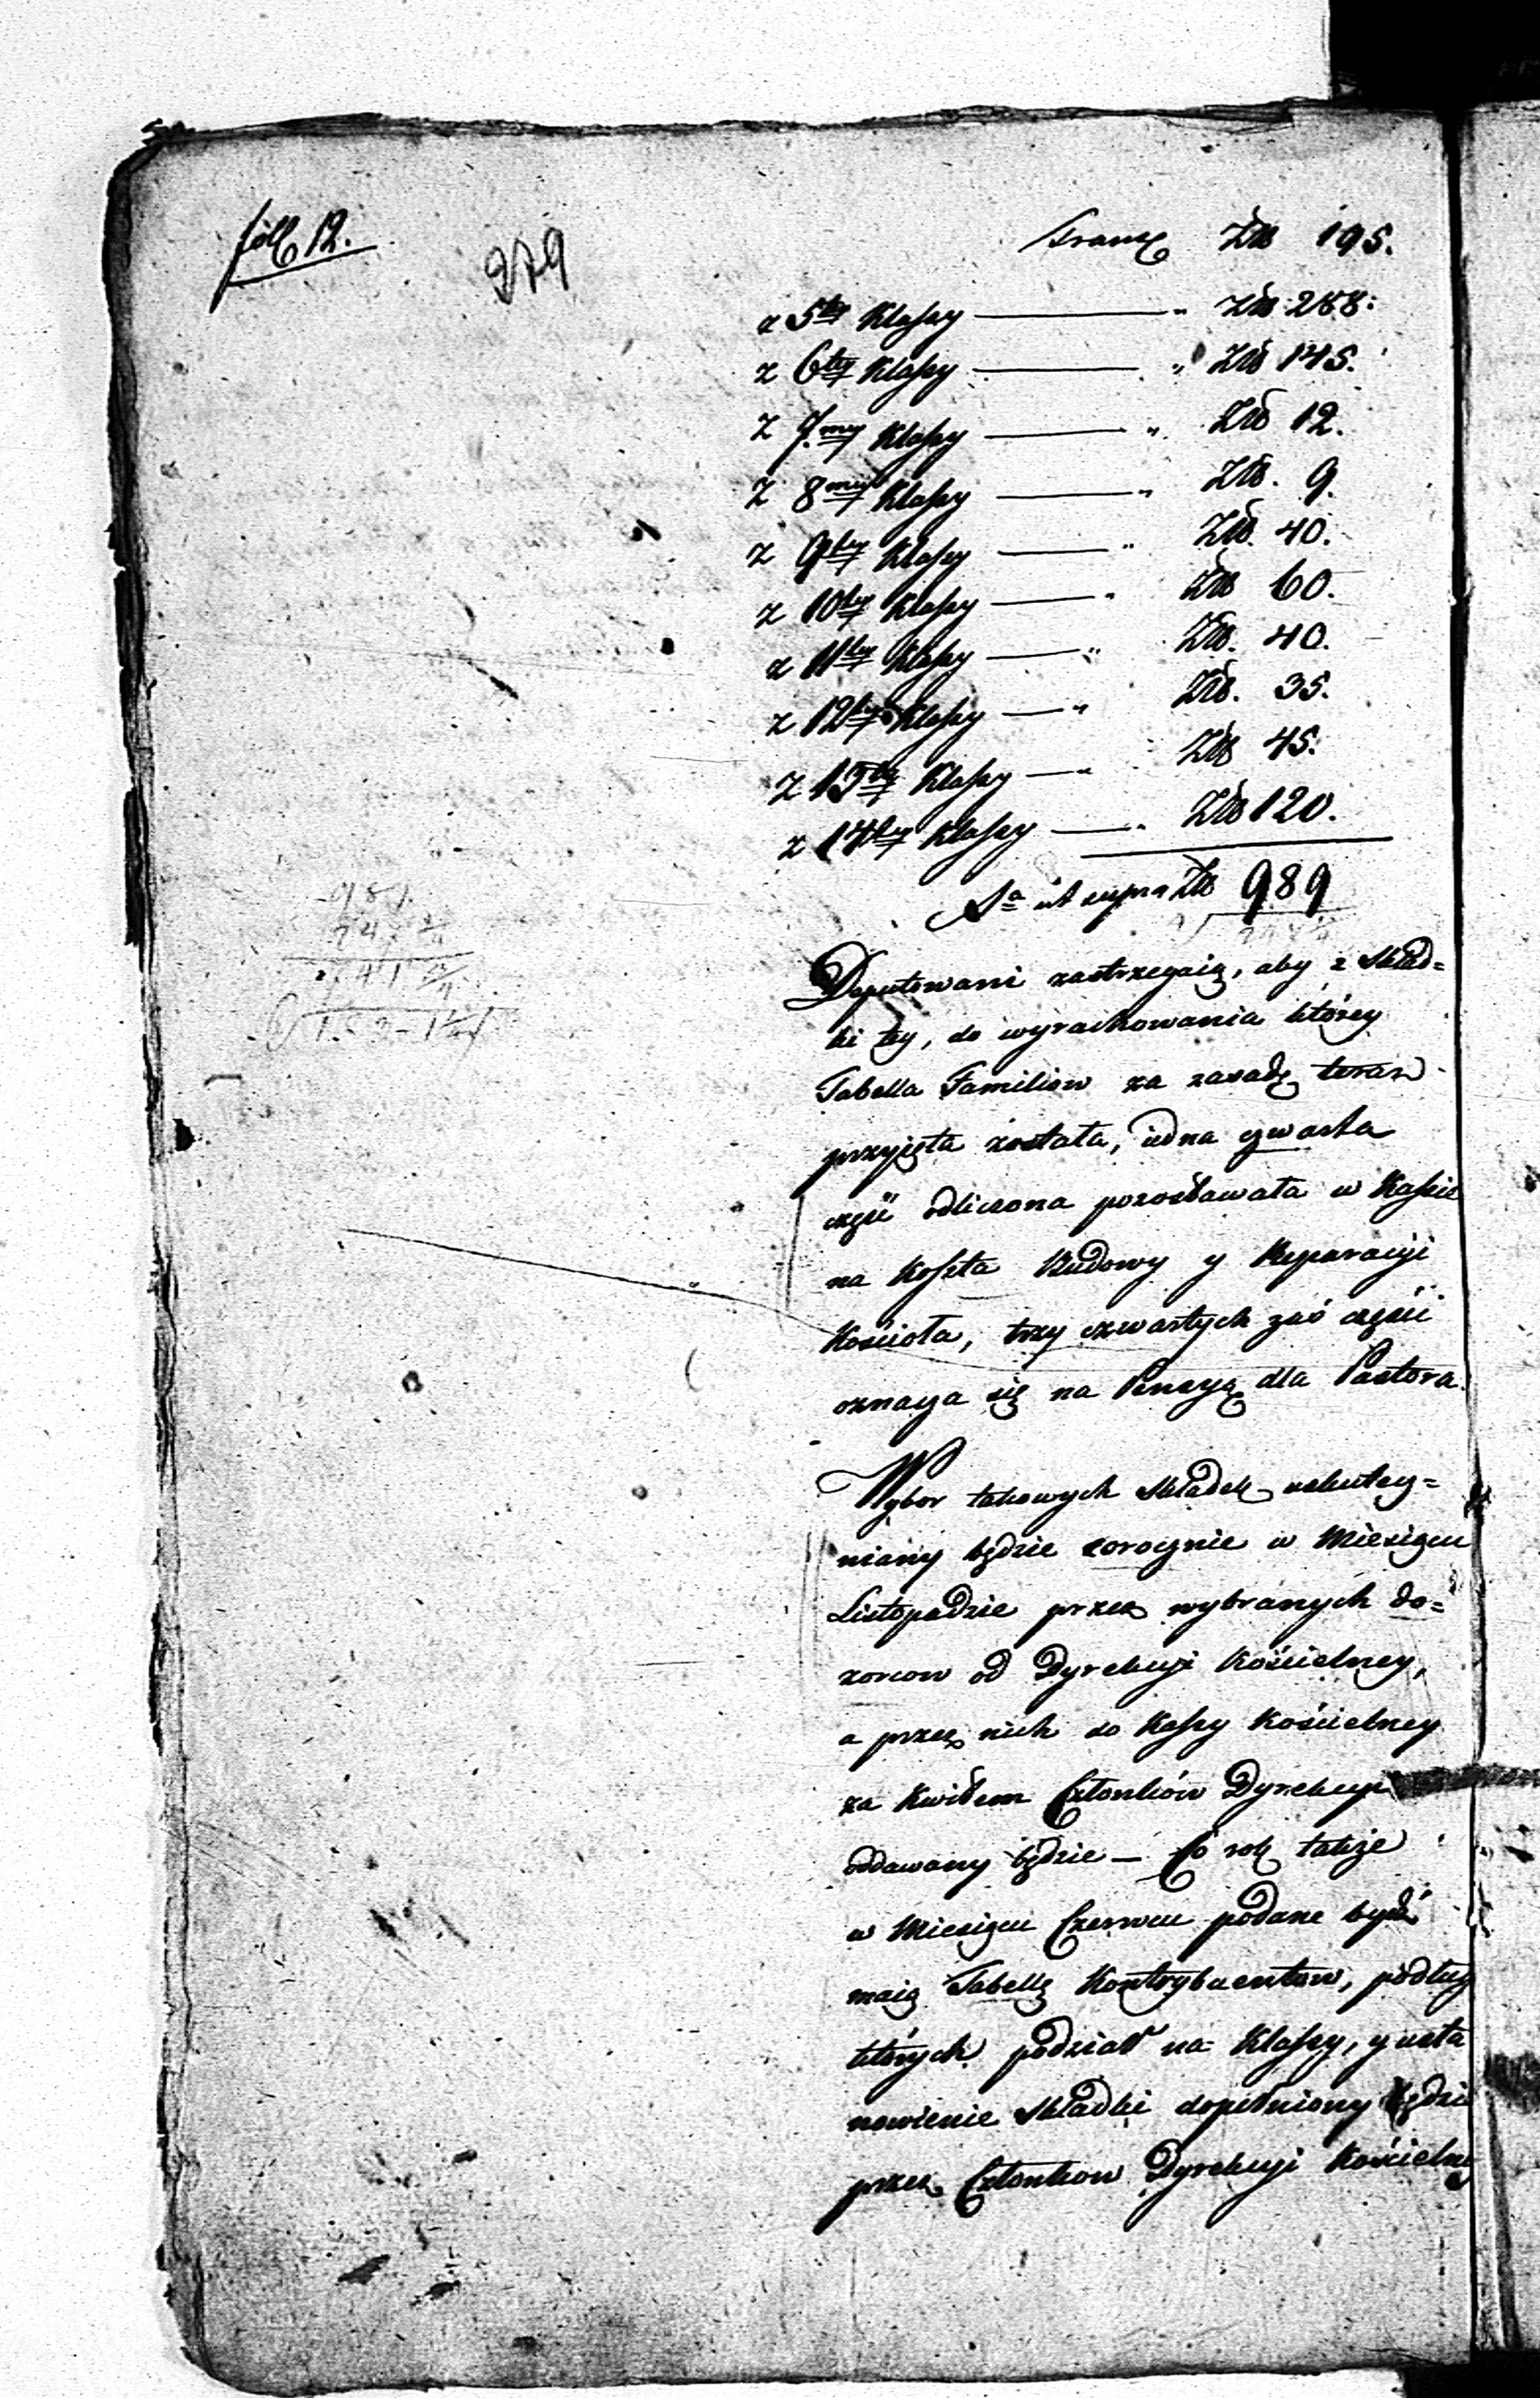 foll 12.
279
Transp Zło 195.
z 5tey Klassy — " Zło 288:
z 6tey Klassy — " Zło 145.
z 7.mey Klassy — " Zło 12.
z 8mey Klassy — " Zło. 9.
z 9tey Klassy — " Zło. 40.
z 10tey Klassy — " Zło 60.
z 11tey Klassy — " Zło. 40.
z 12tey Klassy — " Zło. 35.
z 13tey Klassy — " Zło 45.
z 14tey Klassy — " Zło 120.
Sa ut supra Zło 989
Deputowani zastrzegaią, aby z Skład=
ki tey, do wyrachowania którey
Tabella Familiow za zasadę teraz
przyięta została, iedna czwarta
część odliczona pozostawała w Kassie
na Koszta Budowy y Reparacyi
Kościoła, trzy czwartych zaś części
oznacza się na Pensyą dla Pastora.
Wybor takowych Składek uskutecz=
niany będzie corocznie w Miesiącu
Listopadzie przez wybranych do=
zorcow od Dyrekcyi Kościelney,
a przez nich do Kassy Kościelney
za Kwitem Członków Dyrekcyi
oddawany będzie — Co rok także
w Miesiącu Czerwcu podane bydź
maią Tabellę Kontrybuentow, podług
których podział na Klassy, y usta
nowienie Składki dopełniony będzie
przez Członkow Dyrekcyi Kościelney